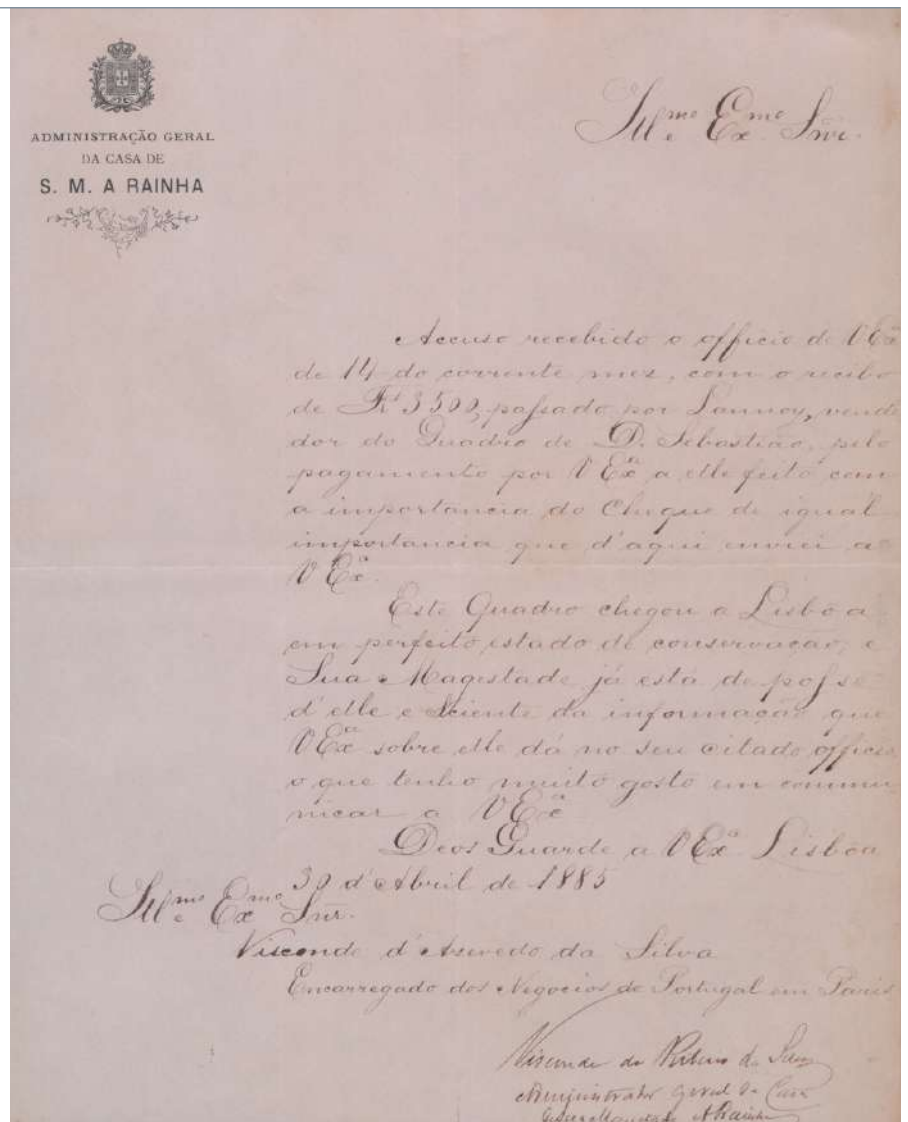 ADMINISTRAÇÃO GERAL
DA CASA DE
S. M. A RAINHA
Ill.mo e Ex.mo Snr.
Accuso recebido o officio de V Ex.ª
de 14 do corrente mez, com o recibo
de Fr 3500, passado por Lannoy, vende
dor do Quadro de D. Sebastião, pelo
pagamento por V Ex.ª a elle feito com
a importancia do Cheque de igual
importancia que d'aqui enviei a
V Ex.ª
Este Quadro chegou a Lisbôa
em perfeito estado de conservação, e
Sua Magestade já está de posse
d'elle e sciente da informação que
V Ex.ª sobre elle dá no seu citado officio,
o que tenho muito gosto em commu
nicar a V Ex.ª
Deos Guarde a V Ex.ª Lisbôa
30 d'Abril de 1885
Ill.mo e Ex.mo Snr.
Visconde d'Azevedo da Silva
Encarregado dos Negocios de Portugal em Paris
Visconde da
Administrador Geral da Casa
de Sua Magestade A Rainha